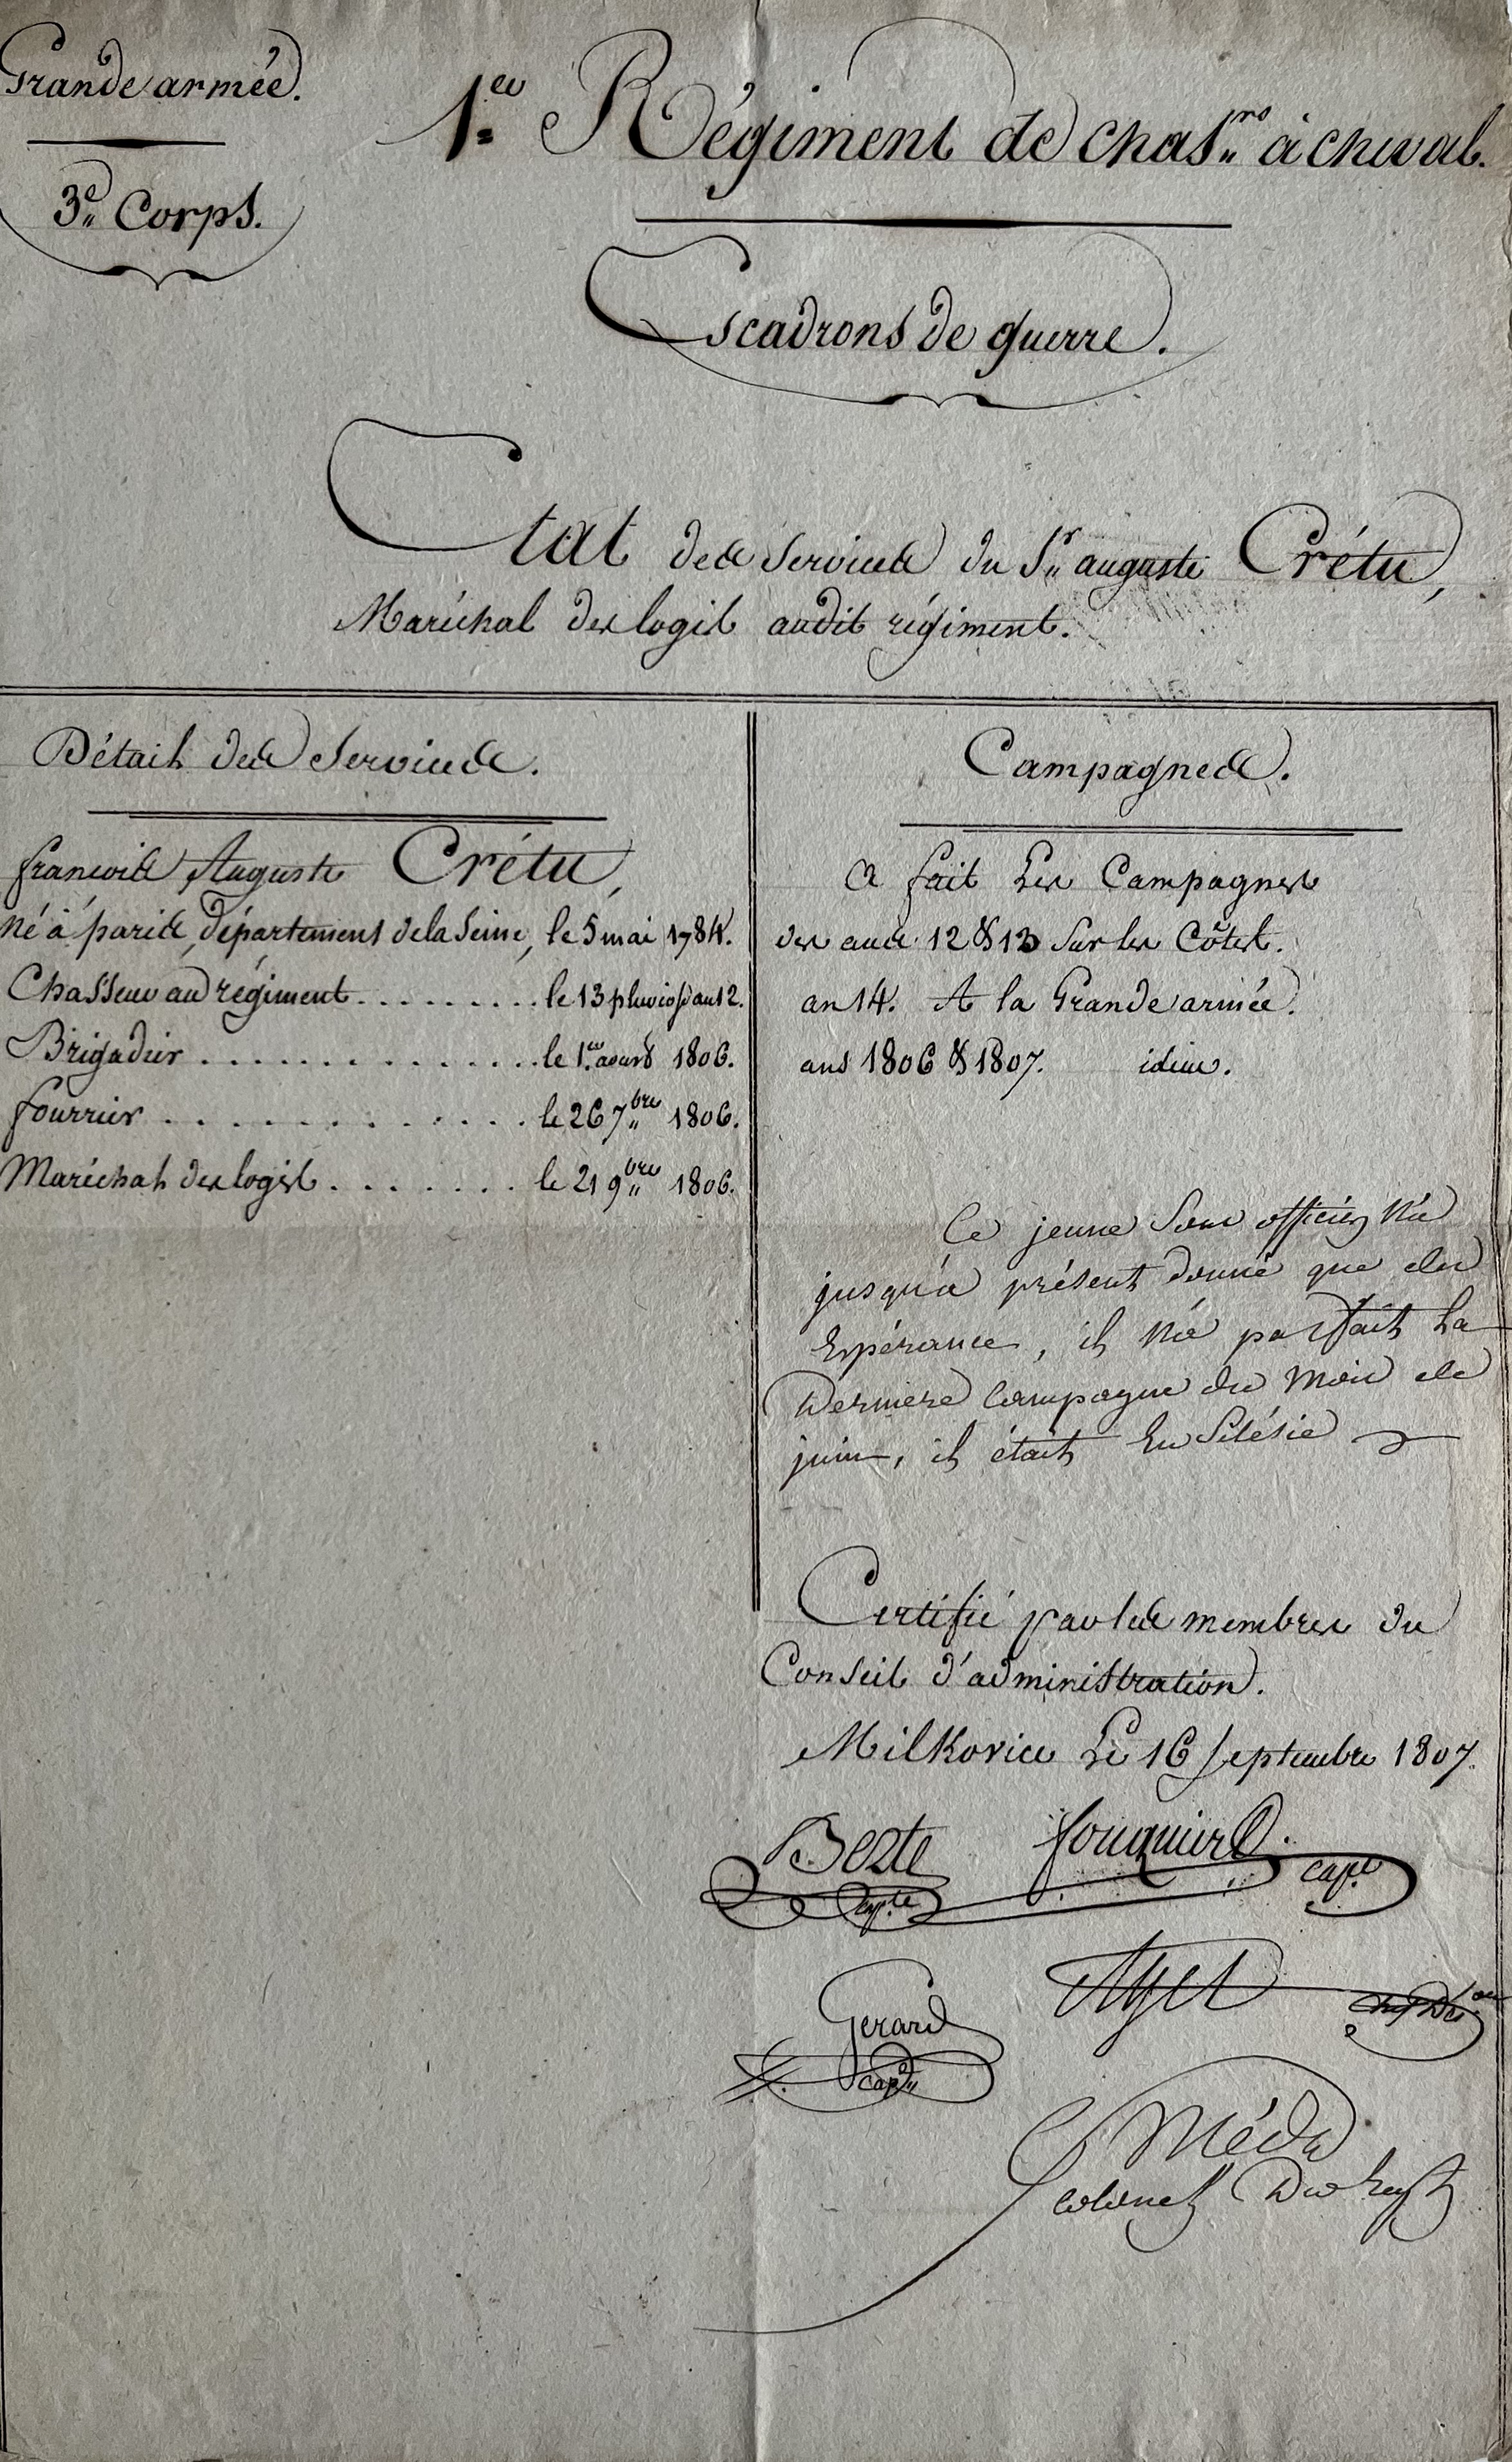 Grande armée.
3e. Corps.
1er Régiment de chasrs. à cheval.
Escadrons de guerre.
Etat des services du Sr. auguste Crétu,
Maréchal des logis audit régiment.
Détail des services.
françois Auguste Crétu,
né à paris, département de la Seine, le 5 mai 1784.
Chasseur au régiment ......... le 13 pluviose an 12.
Brigadier .............. le 1er. 1806.
fourrier ............ le 26 7bre 1806.
Maréchal des logis ....... le 21 9bre 1806.
Campagnes.
A fait les Campagnes
des ans 12 & 13 sur les Côtes.
an 14. A la Grande armée.
ans 1806 & 1807. idem.
Ce jeune sous officier n'a
jusqu'à présent donné que des
Espérances, il n'a pas fait la
Dernière Campagne du mois de
juin, il était En Silésie
Certifié par les membres du
Conseil d'administration.
Milkovice Le 16 Septembre 1807.
fouquier
capt.
Gerard
cape
Méda
Colonel Du